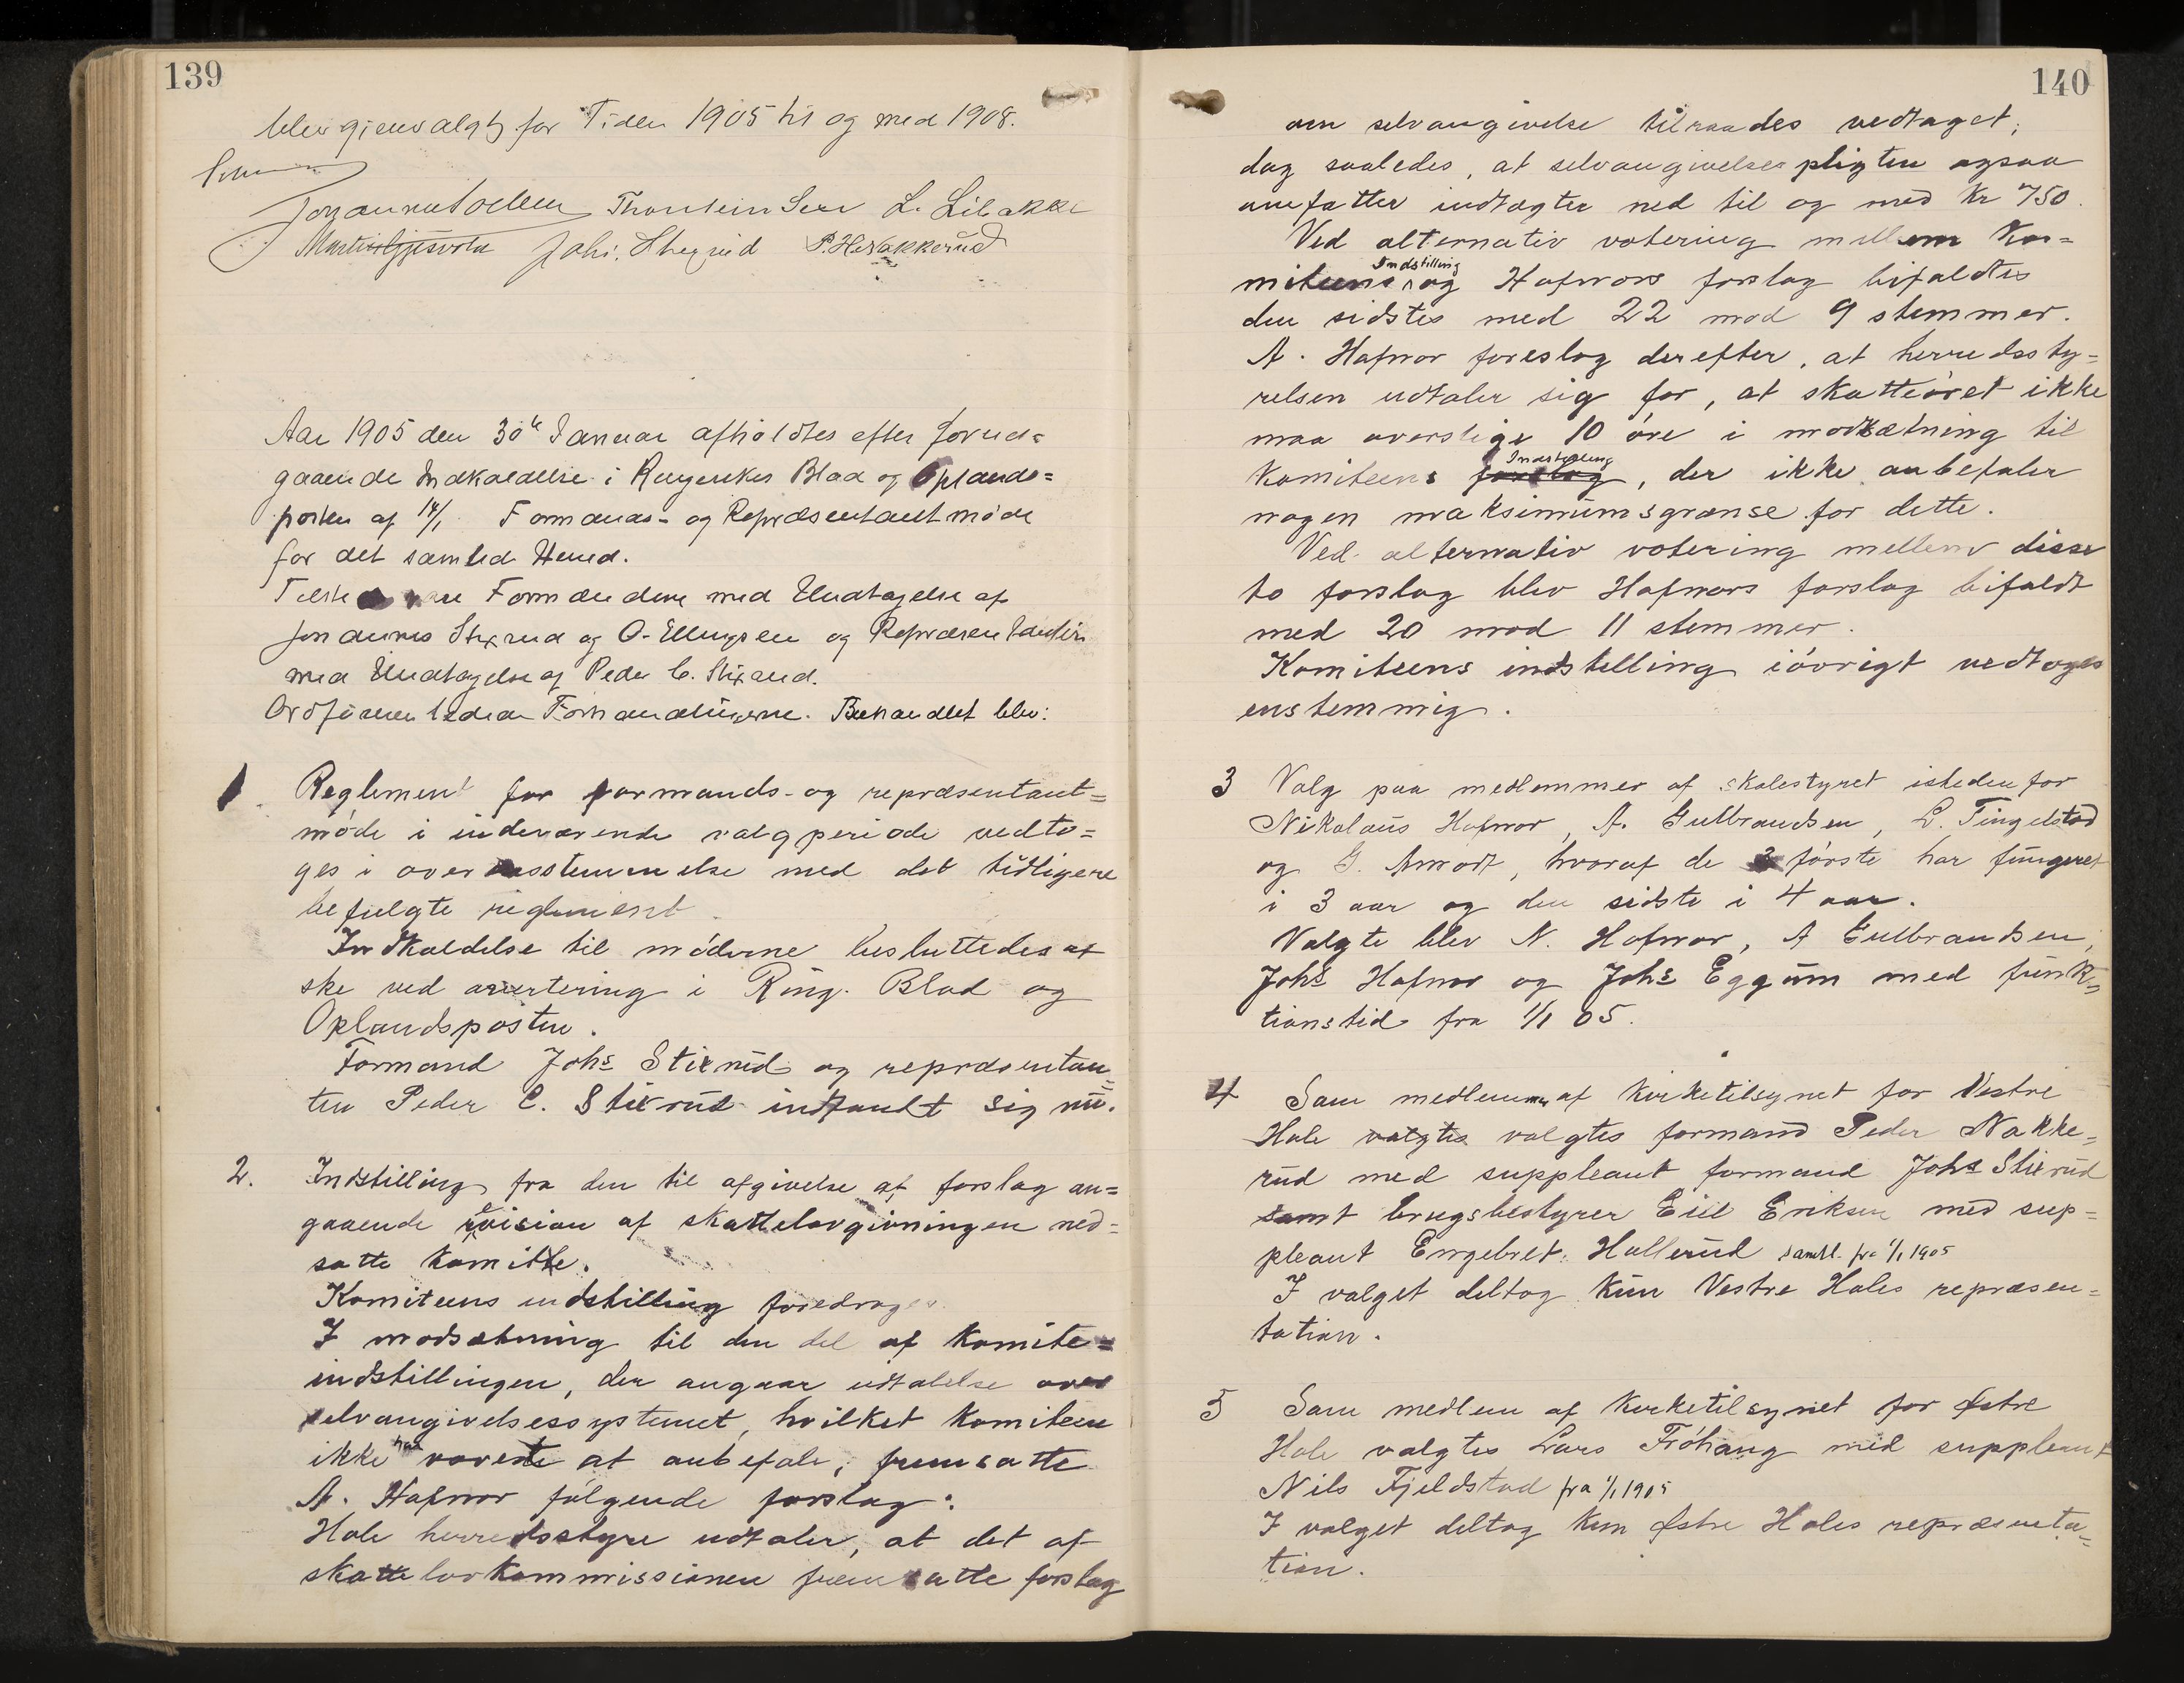 139
blev gjenvalgt for Tiden 1905 til og med 1908.
Johannes Solberg Thorstein Sørum L. Libakke
Martin Gjesvold Johs. Stixrud P. H. Nakkerud
Aar 1905 den 30te Januar afholdtes efter forud=
gaaende Indkaldelse i Ringerikes Blad og Oplands=
posten af 14/1 Formands- og Repræsentantmøde
for det samlede Herred.
Tilstede var Formændene med Undtagelse af
Johannes Stixrud og O. Ellingsen og Repræsentanterne
med Undtagelse af Peder C. Stixrud.
Ordføreren ledede Forhandlingerne. Behandlet blev:
1. Reglement for formands- og repræsentant=
møde i indeværende valgperiode vedto=
ges i overensstemmelse med det tidligere
befulgte reglement.
Indkaldelse til møderne besluttedes at
ske ved avertering i Ring. Blad og
Oplandsposten.
Formand Johs Stixrud og repræsentan=
ten Peder C. Stixrud indfandt sig nu.
2. Indstilling fra den til afgivelse af forslag an=
gaaende revision af skattelovgivningen ned=
satte komite.
Komiteens indstilling foredroges.
I modsætning til den del af komite=
indstillingen, der angaar udtalelse over
selvangivelsessystemet, hvilket komiteen
ikke har vovet at anbefale, fremsatte
A. Hafnor følgende forslag:
Hole herredsstyre udtaler, at det af
skattelovkommissionen fremsatte forslag
140
om selvangivelse tilraades vedtaget,
dog saaledes, at selvangivelsespligten ogsaa
omfatter indtægter ned til og med Kr 750.
Ved alternativ votering mellem Ko=
miteens Indstilling og Hafnors forslag bifaldtes
den sidstes med 22 mod 9 stemmer.
A. Hafnor foreslog derefter, at herredssty=
relsen udtaler sig for, at skatteøret ikke
maa overstige 10 øre i modsætning til
Komiteens forslag Indstilling, der ikke anbefaler
nogen maksimumsgrænse for dette.
Ved alternativ votering mellem disse
to forslag blev Hafnors forslag bifaldt
med 20 mod 11 stemmer.
Komiteens indstilling iøvrigt vedtoges
enstemmig.
3 Valg paa medlemmer af skolestyret istedenfor
Nikolaus Hafnor, A. Gulbrandsen, L. Tingelstad
og G. Amodt, hvoraf de 3 første har fungeret
i 3 aar og den sidste i 4 aar.
Valgte blev N. Hafnor, A Gulbrandsen,
Johs Hafnor og Johs Eggum med funk=
tionstid fra 1/1 05.
4 Som medlemmer af kirketilsynet for Vestre
Hole valgtes valgtes formand Peder Nakke=
rud med suppleant formand Johs Stixrud
samt brugsbestyrer Eill Eriksen med sup=
pleant Engebret Hallerud samtl. fra 1/1 1905
I valget deltog kun Vestre Holes repræsen=
tation.
5 Som medlem af kirketilsynet for Østre
Hole valgtes Lars Frøhaug med suppleant
Nils Fjeldstad fra 1/1 1905
I valget deltog kun Østre Holes repræsenta=
tion.